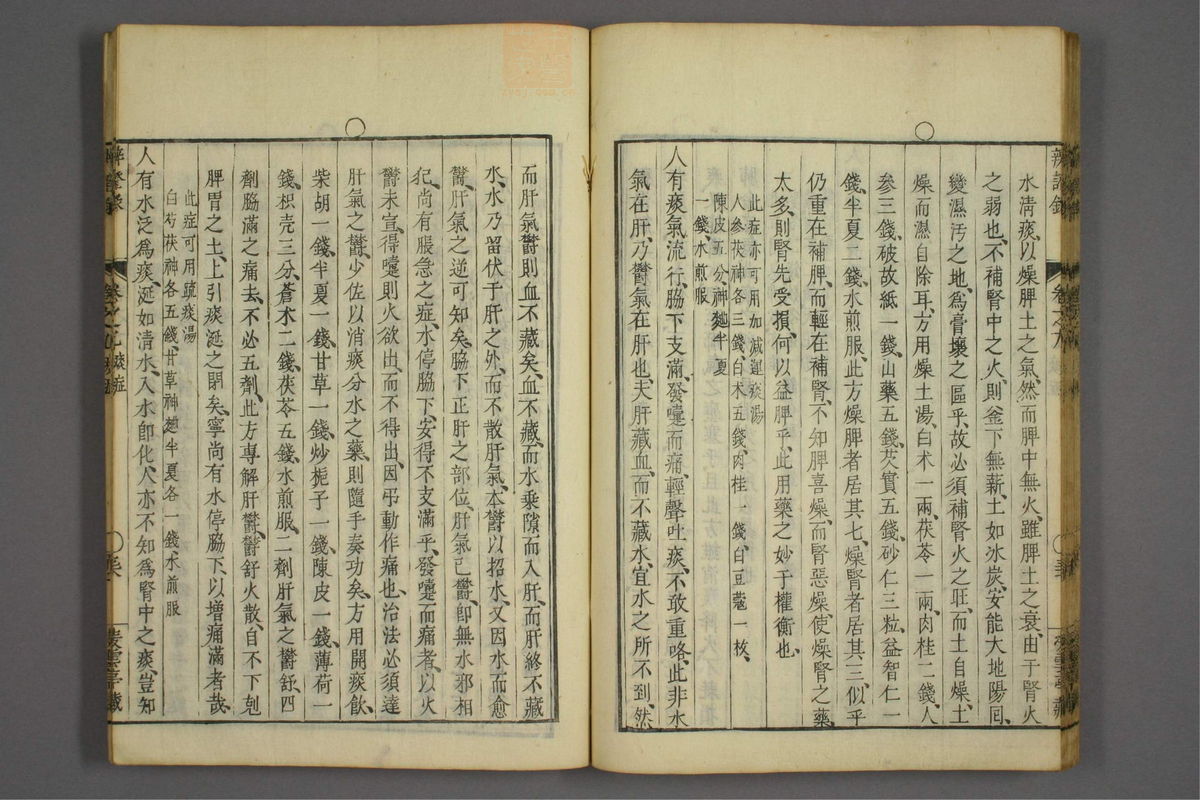 水清痰、以燥脾土之氣、然而脾中無火、雖脾土之衰、由于腎火
之弱也、不補腎中之火、則釜下無薪、土如冰炭、安能大地陽囘、
變濕汚之地、爲膏壤之區乎、故必須補腎火之旺、而土自燥、土
燥而濕自除耳、方用燥土湯、白术一兩、茯苓一兩、肉桂二錢、人
參三錢、破故紙一錢、山藥五錢、芡實五錢、砂仁三粒、益智仁一
錢、半夏二錢、水煎服、此方燥脾者居其七、燥腎者居其三、似乎
仍重在補脾、而輕在補腎、不知脾喜燥、而腎惡燥、使燥腎之藥、
太多、則腎先受損、何以益脾乎、此用藥之妙于權衡也、
此症亦可用加減運痰湯
人參茯神各三錢、白术五錢、肉桂一錢、白豆蔻一枚、
陳皮五分、神麯半夏
一錢、水煎服
人有痰氣流行、脇下支滿、發嚏而痛、輕聲吐痰、不敢重咯、此非水
氣在肝、乃鬱氣在肝也、夫肝藏血、而不藏水、宜水之所不到、然
而肝氣鬱則血不藏矣、血不藏、而水乘隙而入肝、而肝終不藏
水、水乃留伏于肝之外、而不散肝氣、本鬱以招水、又因水而愈
鬱、肝氣之逆可知矣、脇下正肝之部位、肝氣已鬱、卽無水邪相
犯、尚有脹急之症、水停脇下、安得不支滿乎、發嚏而痛者、以火
鬱未宣、得嚏則火欲出、而不得出、因弔動作痛也、治法必須達
肝氣之鬱、少佐以消痰分水之藥、則隨手奏功矣、方用開痰飲、
柴胡一錢、半夏一錢、甘草一錢、炒梔子一錢、陳皮一錢、薄荷一
錢、枳壳三分、蒼术二錢、茯苓五錢、水煎服、二劑肝氣之鬱舒、四
劑脇滿之痛去、不必五劑、此方專解肝鬱、鬱舒火散、自不下剋
脾胃之土、上引痰涎之閉矣、寧尚有水停脇下、以增痛滿者哉、
此症可用疏痰湯
白芍茯神各五錢、甘草神麯半夏各一錢、水煎服
人有水泛爲痰、涎如清水、入水卽化、人亦不知爲腎中之痰、豈知